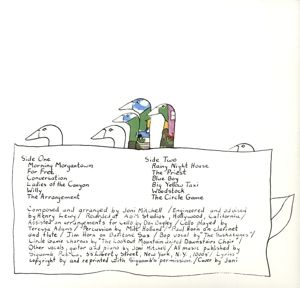 Side One
Morning Morgantown
For Free
Conversation
Ladies of the Canyon
Willy
The Arrangement
Side Two
Rainy Night House
The Priest
Blue Boy
Big Yellow Taxi
Woodstock
The Circle Game
Composed and arranged by Joni Mitchell / Engineered and advised
by Henry Lewy / Recorded at A&M Studios, Hollywood, California /
Assisted on arrangements for cello by Don Bagley / Cello played by
Teressa Adams / Percussion by Milt Holland / Paul Horn on clarinet
and flute / Jim Horn on Baritone Sax / Bop vocal by "The Saskatunes"
Circle Game chorus by "The Lookout Mountain United Downstairs Choir" /
Other vocals, guitar and piano by Joni Mitchell / All music published by
Siquomb Pub. Corp., 55 Liberty Street, New York, N.Y. 10005 / Lyrics
copyright by and reprinted with Siquomb's permission. / Cover by Joni